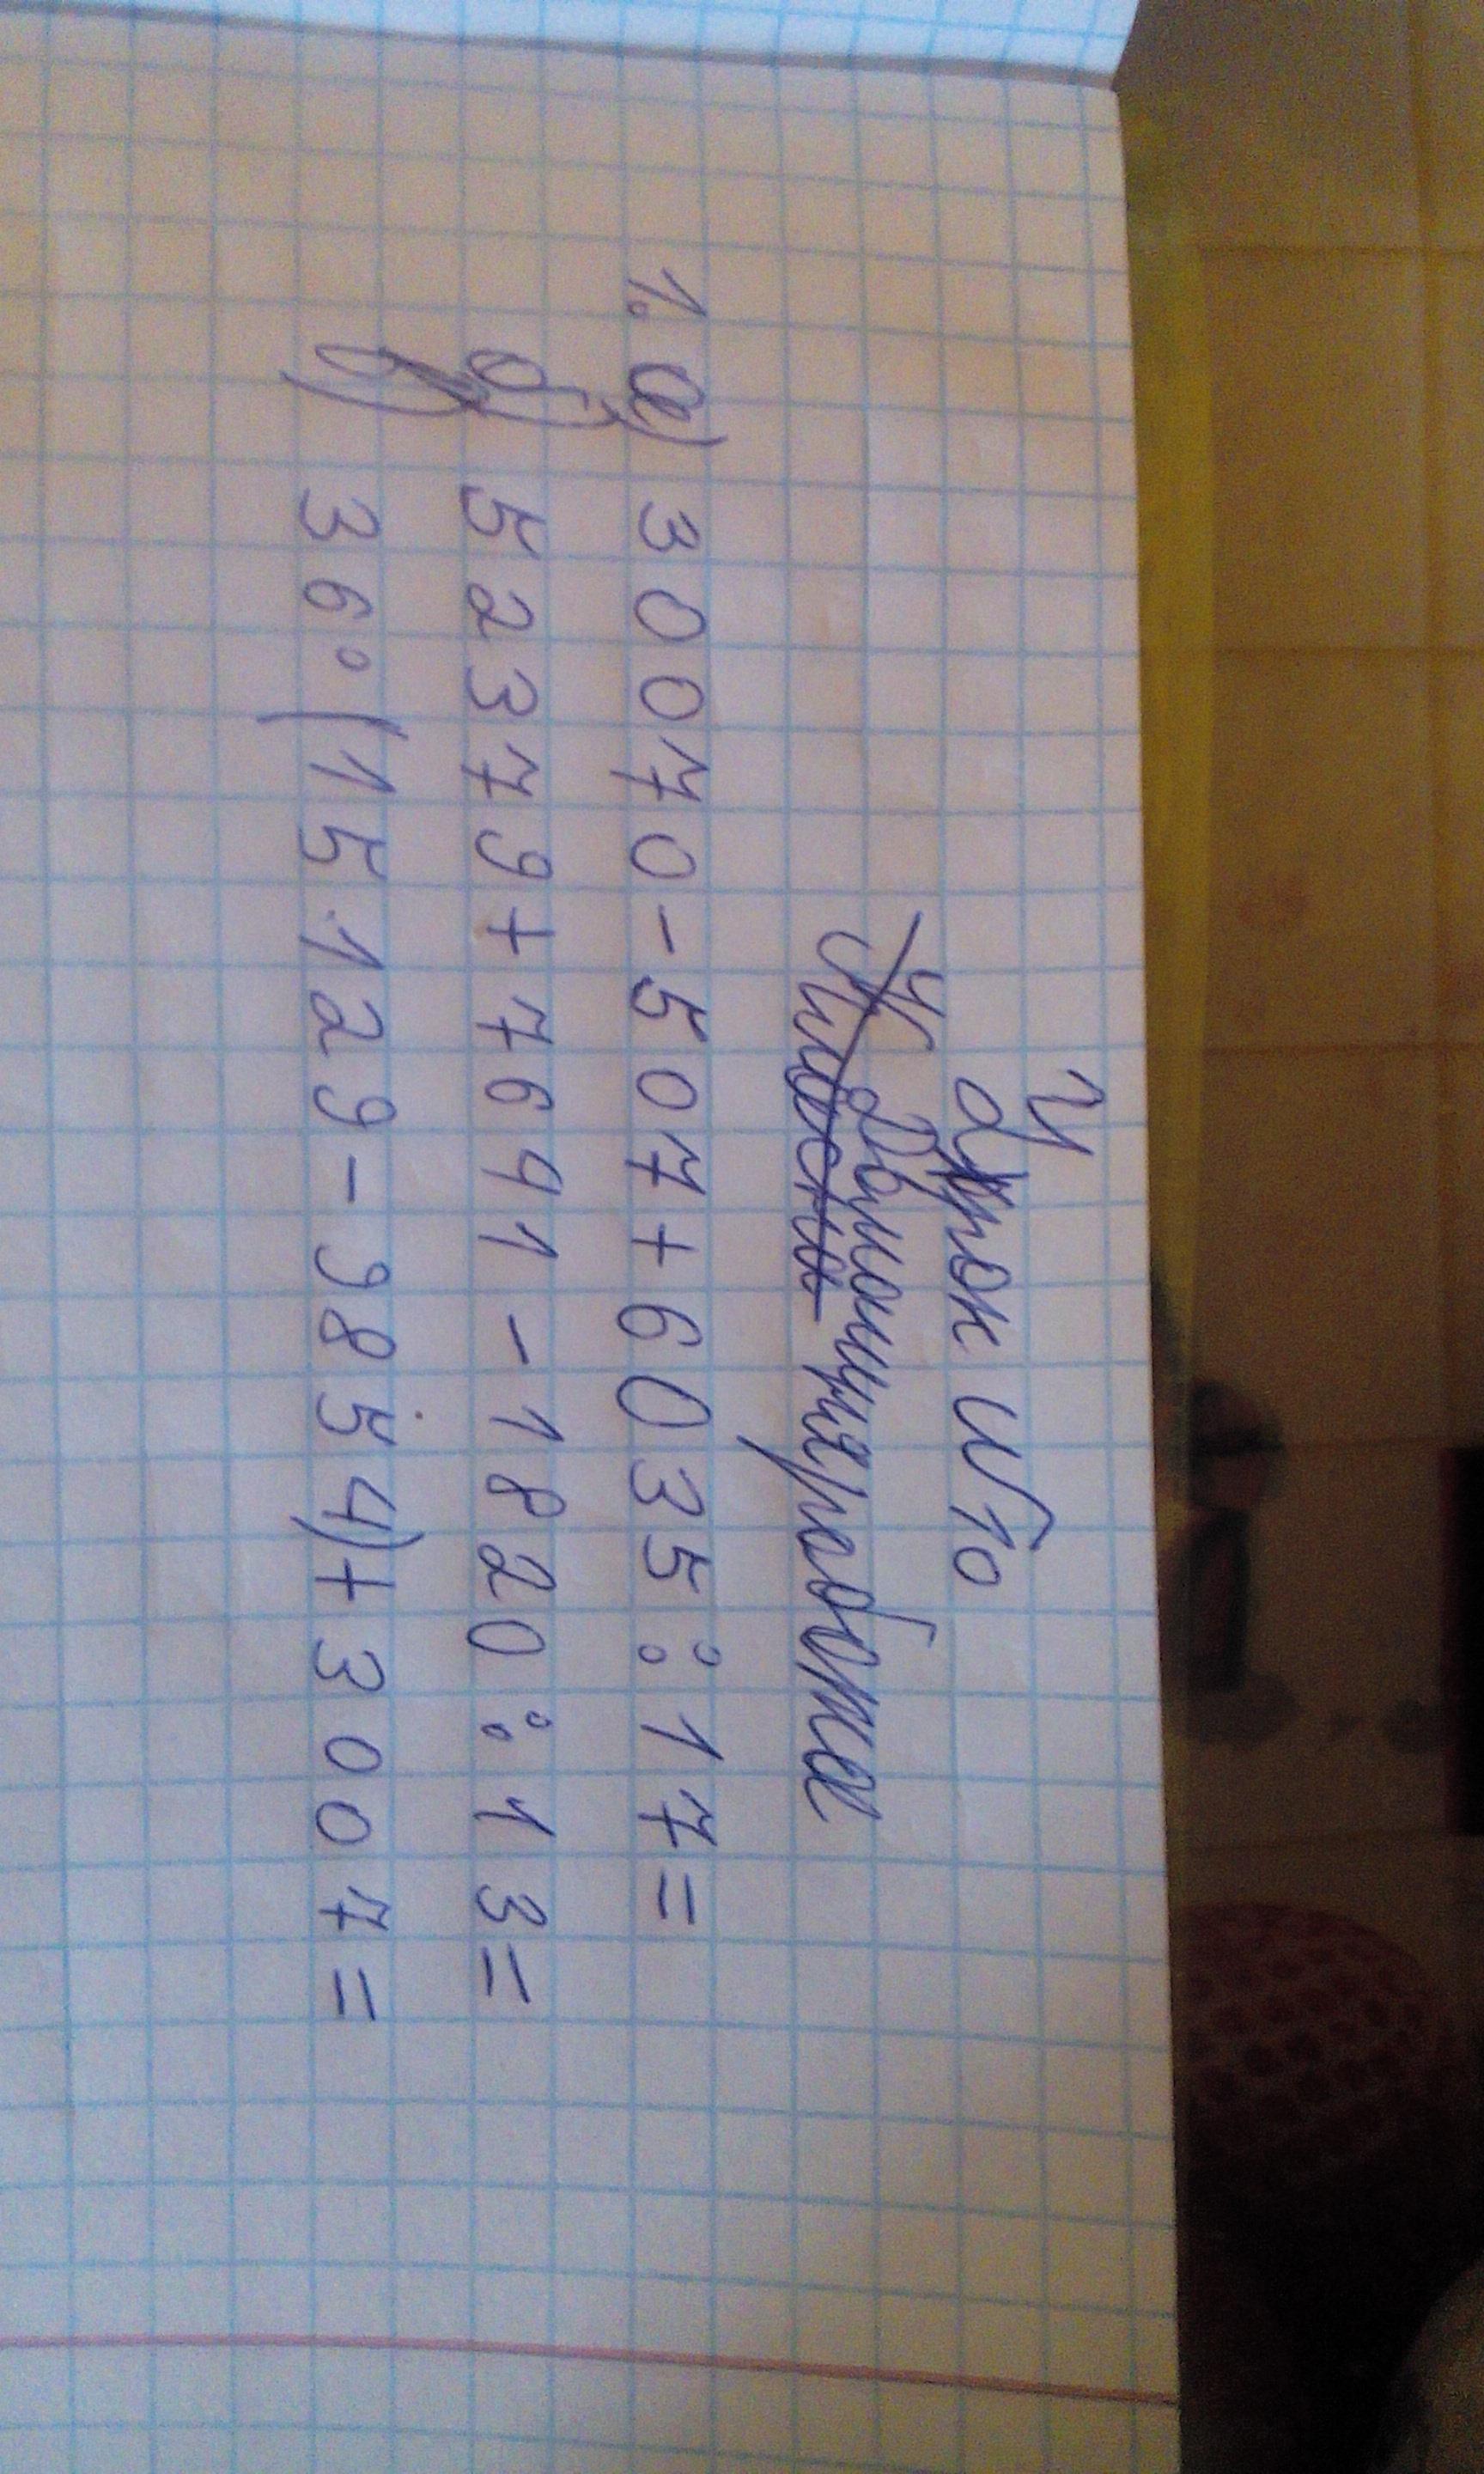 Урок №10
Домашняя работа
1. а) 30070-507+6035:17=
б) 52379+7691-1820:13=
в) 36·(15129-9854)+3007=